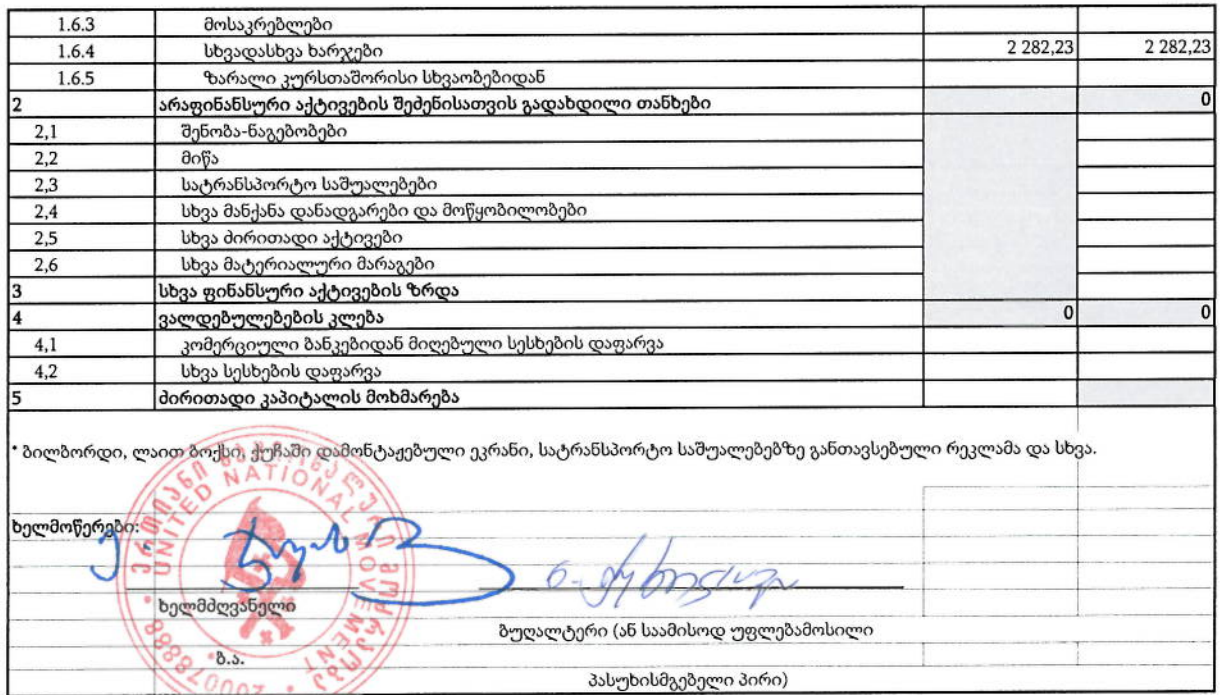 1.6.3 მოსაკრებლები
1.6.4 სხვადასხვა ხარჯები 2 282,23 2 282,23
1.6.5 ზარალი კურსთაშორისი სხვაობებიდან
2 არაფინანსური აქტივების შეძენისათვის გადახდილი თანხები 0
2,1 შენობა-ნაგებობები
2,2 მიწა
2,3 სატრანსპორტო საშუალებები
2,4 სხვა მანქანა დანადგარები და მოწყობილობები
2,5 სხვა ძირითადი აქტივები
2,6 სხვა მატერიალური მარაგები
3 სხვა ფინანსური აქტივების ზრდა
4 ვალდებულებების კლება 0 0
4,1 კომერციული ბანკებიდან მიღებული სესხების დაფარვა
4,2 სხვა სესხების დაფარვა
5 ძირითადი კაპიტალის მოხმარება
* ბილბორდი, ლაით ბოქსი, ქუჩაში დამონტაჟებული ეკრანი, სატრანსპორტო საშუალებებზე განთავსებული რეკლამა და სხვა.
ერთიანი ნაციონალური მოძრაობა
UNITED NATIONAL MOVEMENT
ხელმოწერები:
ხელმძღვანელი
ბუღალტერი (ან საამისოდ უფლებამოსილი
ბ.ა.
პასუხისმგებელი პირი)